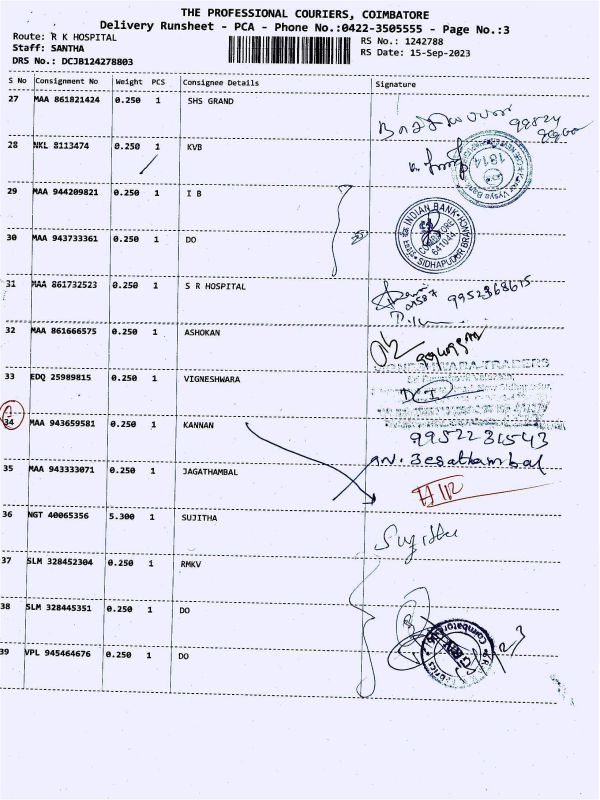 THE PROFESSIONAL COURIERS, COIMBATORE
Delivery Runsheet - PCA - Phone No.:0422-3505555 - Page No.:3
Route: R K HOSPITAL
RS No.: 1242788
Staff: SANTHA
RS Date: 15-Sep-2023
DRS No.: DCJB124278803
S No Consignment No Weight PCS Consignee Details Signature
27 MAA 861821424 0.250 1 SHS GRAND
28 NKL 8113474 0.250 1 KVB
1814
29 MAA 944209821 0.250 1 I B
INDIAN BANK
COIMBATORE
641044
SIDHAPUDUR BRANCH
30 MAA 943733361 0.250 1 DO
31 MAA 861732523 0.250 1 S R HOSPITAL
9952368615
32 MAA 861666575 0.250 1 ASHOKAN
TRADERS
33 EDQ 25989815 0.250 1 VIGNESHWARA
34 MAA 943659581 0.250 1 KANNAN
9952231543
35 MAA 943333071 0.250 1 JAGATHAMBAL
36 NGT 40065356 5.300 1 SUJITHA
Sujitha
37 SLM 328452304 0.250 1 RMKV
38 SLM 328445351 0.250 1 DO
39 VPL 945464676 0.250 1 DO